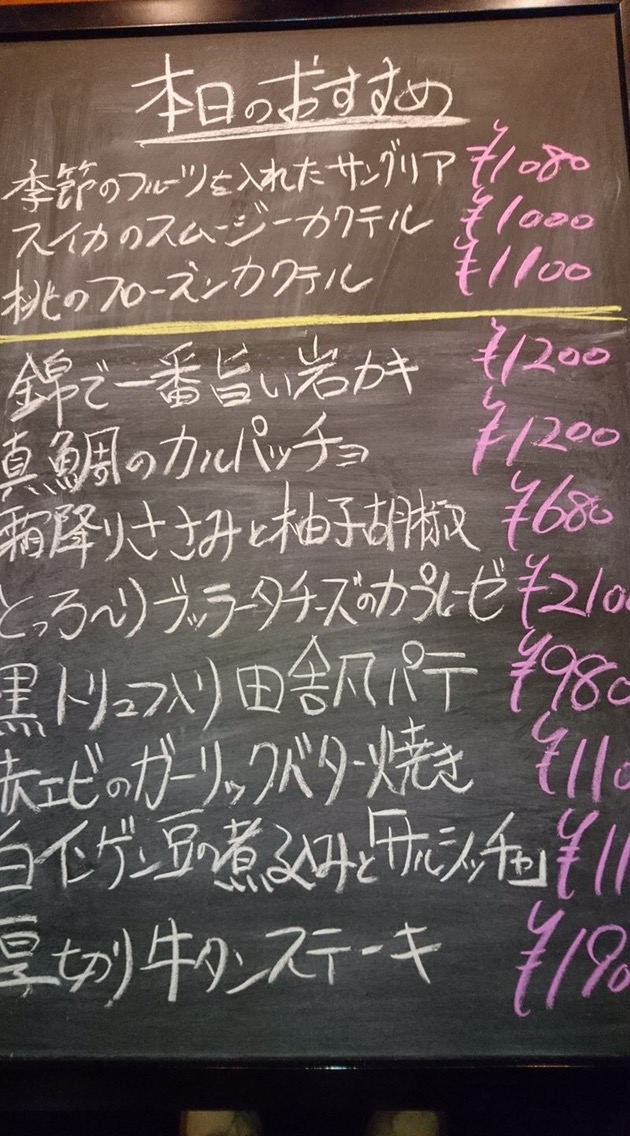 本日のおすすめ
季節のフルーツを入れたサングリア ¥1080
スイカのスムージーカクテル ¥1000
桃のフローズンカクテル ¥1100
錦で一番旨い岩カキ ¥1200
真鯛のカルパッチョ ¥1200
霜降りささみと柚子胡椒 ¥680
とっろ〜り ブッラータチーズのカプレーゼ ¥210
黒トリュフ入り田舎風パテ ¥980
赤エビのガーリックバター焼き ¥110
白インゲン豆の煮込みと「サルシッチャ」 ¥11
厚切り牛タンステーキ ¥190